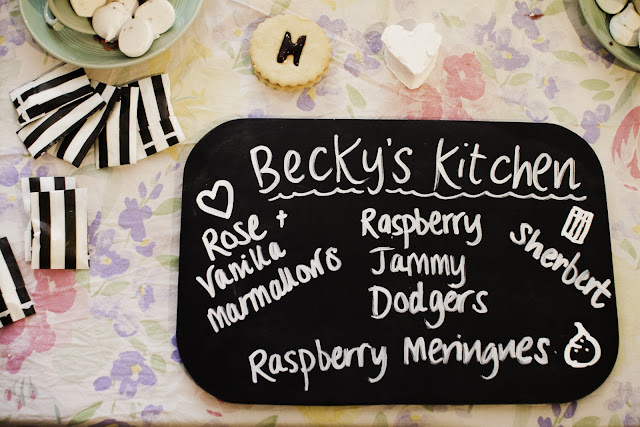 M
Becky's Kitchen
Rose +
Vanilla
Marmallows
Raspberry
Jammy
Dodgers
Sherbert
Raspberry Meringues